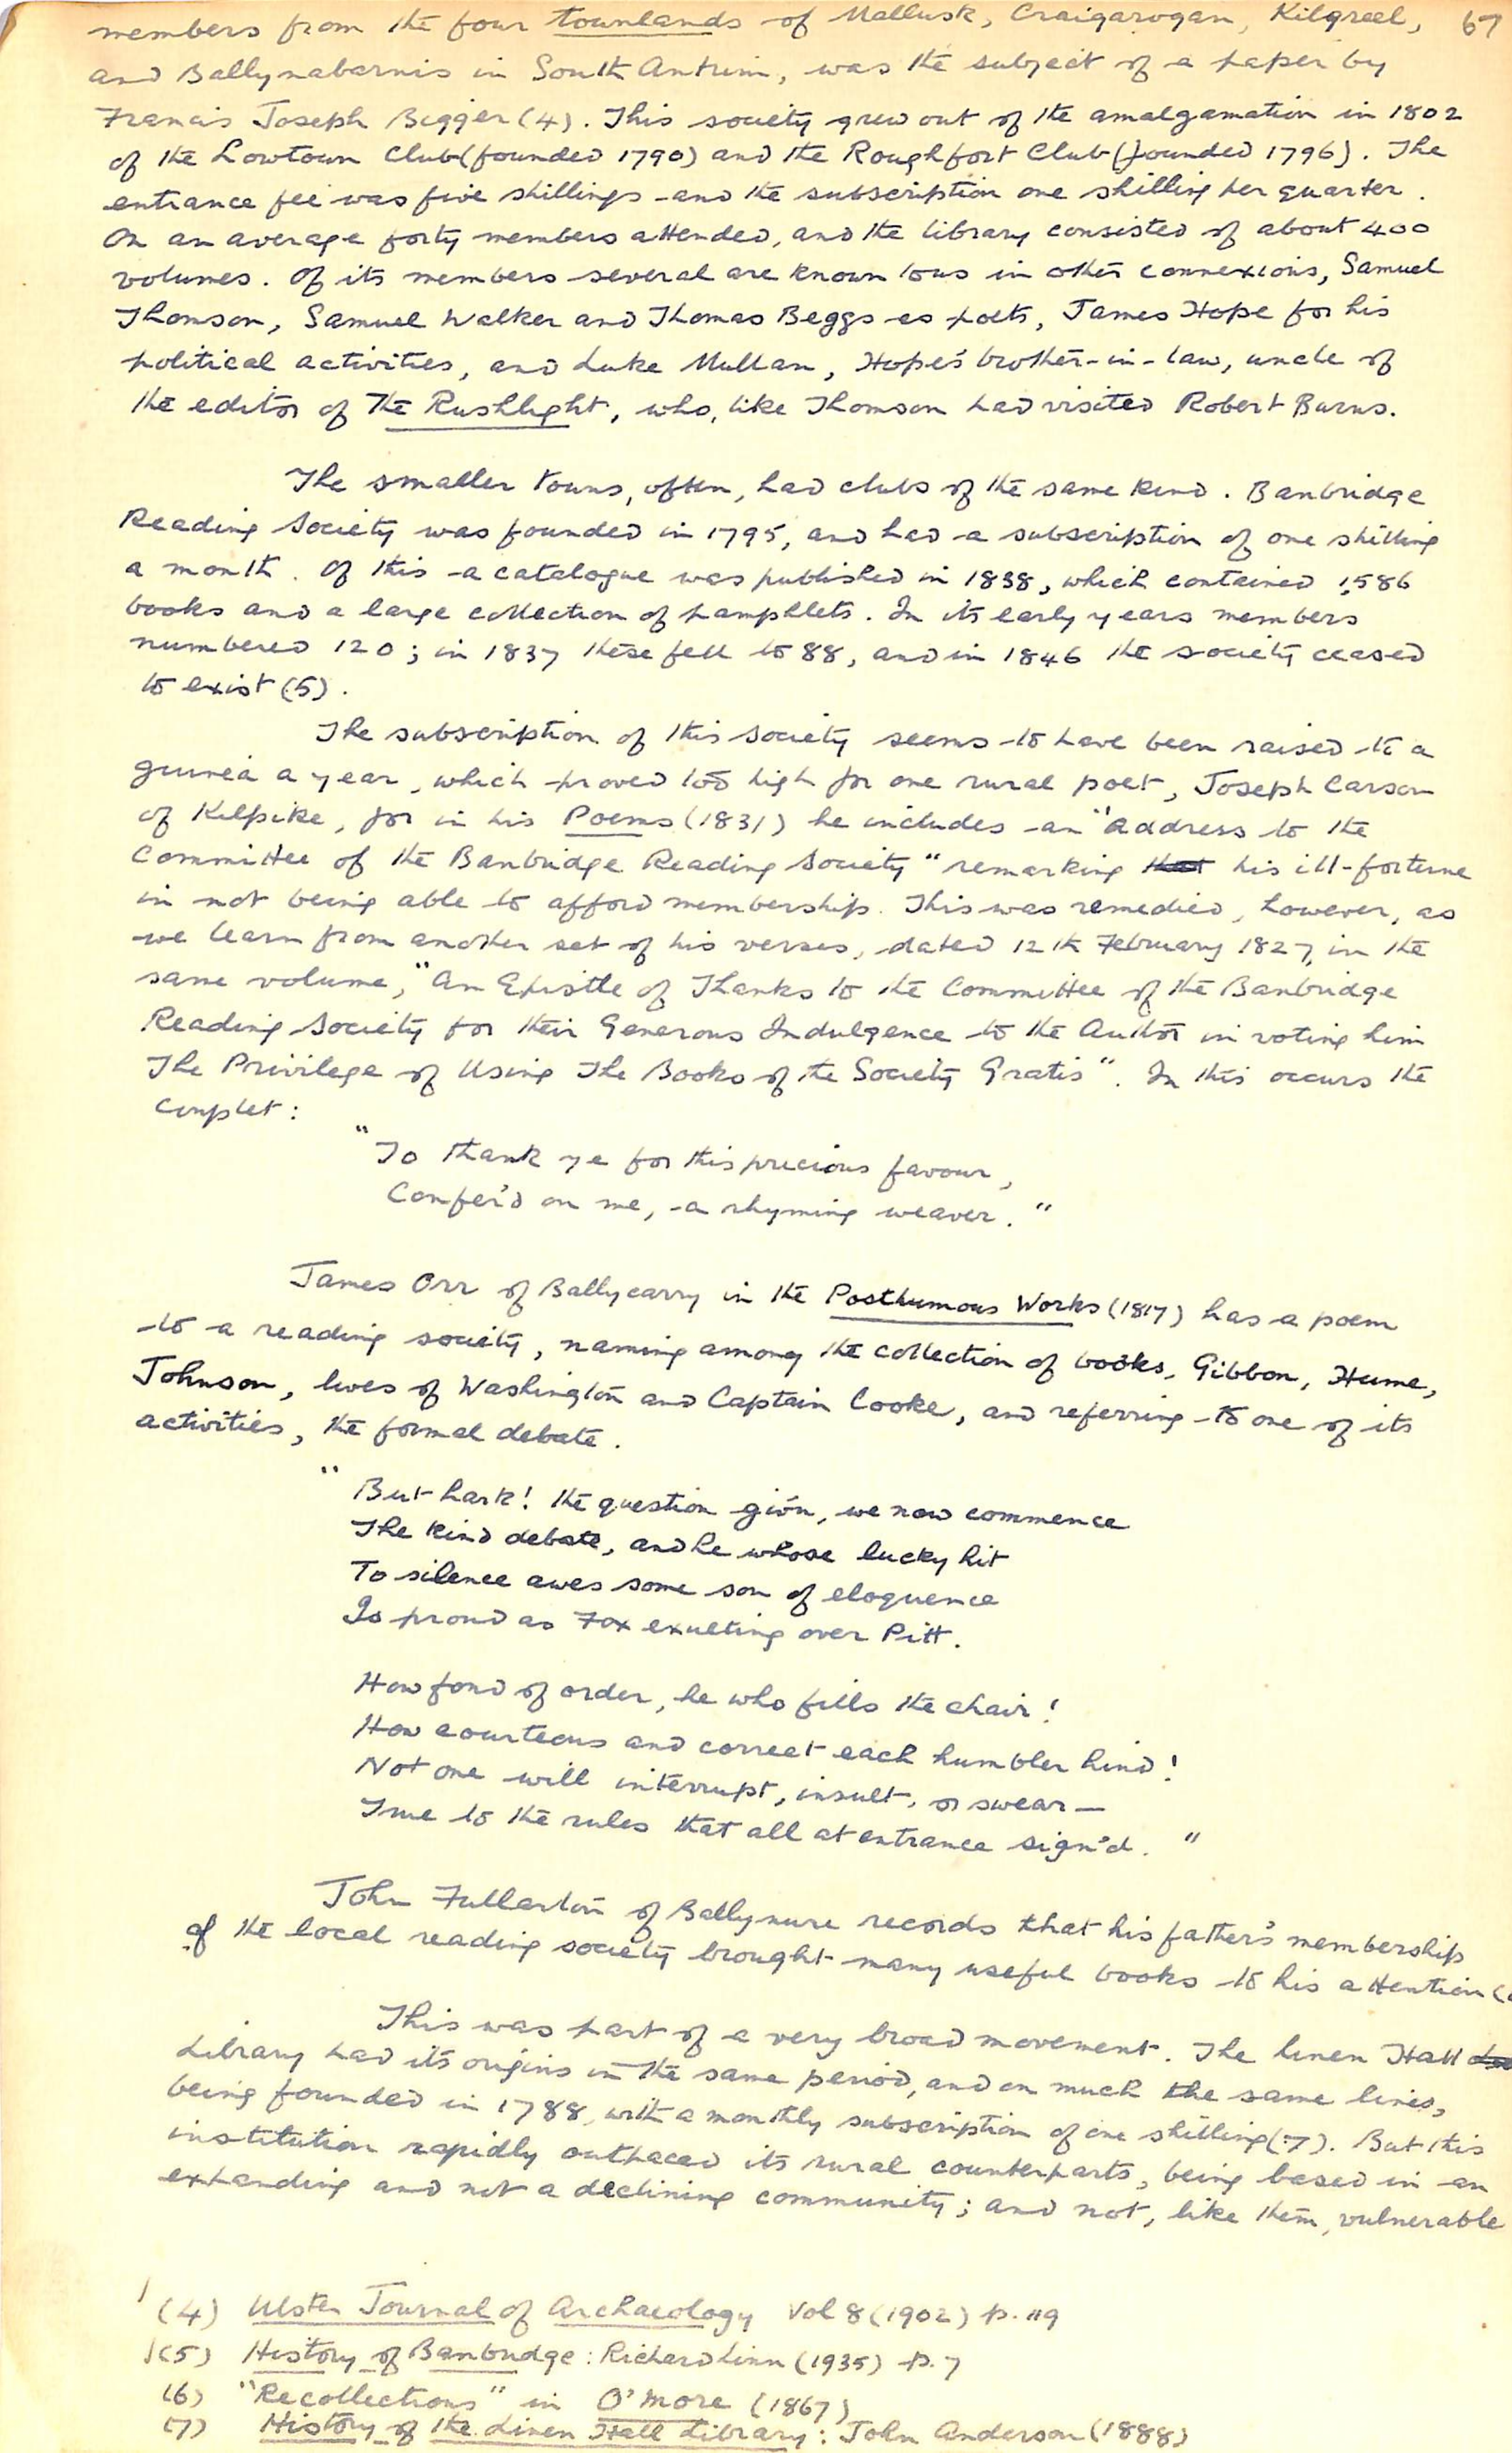 members from the four townlands of Mallusk, Craigarogan, Kilgreel, 67
and Ballynabarnis in South Antrim, was the subject of a paper by
Francis Joseph Bigger (4). This society grew out of the amalgamation in 1802
of the Lowtown Club (founded 1790) and the Roughfort Club (founded 1796). The
entrance fee was five shillings and the subscription one shilling per quarter.
On an average forty members attended, and the library consisted of about 400
volumes. Of its members several are known to us in other connexions, Samuel
Thomson, Samuel Walker and Thomas Beggs as poets, James Hope for his
political activities, and Luke Mullan, Hope's brother-in-law, uncle of
the editor of The Rushlight, who, like Thomson had visited Robert Burns.
The smaller towns, often, had clubs of the same kind. Banbridge
Reading Society was founded in 1795, and had a subscription of one shilling
a month. Of this a catalogue was published in 1838, which contained 1,586
books and a large collection of pamphlets. In its early years members
numbered 120; in 1837 these fell to 88, and in 1846 the society ceased
to exist (5).
The subscription of this society seems to have been raised to a
guinea a year, which proved too high for one rural poet, Joseph Carson
of Kilpike, for in his Poems (1831) he includes an "Address to the
Committee of the Banbridge Reading Society" remarking that his ill-fortune
in not being able to afford membership. This was remedied, however, as
we learn from another set of his verses, dated 12th February 1827, in the
same volume, "An Epistle of Thanks to the Committee of the Banbridge
Reading Society for their Generous Indulgence to the Author in voting him
The Privilege of Using The Books of the Society Gratis". In this occurs the
couplet:
"To thank ye for this precious favour,
Confer'd on me, a rhyming weaver."
James Orr of Ballycarry in the Posthumous Works (1817) has a poem
to a reading society, naming among the collection of books, Gibbon, Hume,
Johnson, lives of Washington and Captain Cooke, and referring to one of its
activities, the formal debate.
"But hark! the question giv'n, we now commence
The kind debate, and he whose lucky hit
To silence awes some son of eloquence
Is proud as Fox exulting over Pitt.
How fond of order, he who fills the chair!
How courteous and correct each humbler hind!
Not one will interrupt, insult, or swear —
True to the rules that all at entrance sign'd."
John Fullarton of Ballynure records that his father's membership
of the local reading society brought many useful books to his attention
This was part of a very broad movement. The Linen Hall
Library had its origins in the same period, and on much the same lines,
being founded in 1788, with a monthly subscription of one shilling (7). But this
institution rapidly outpaced its rural counterparts, being based in an
expanding and not a declining community; and not, like them, vulnerable
(4) Ulster Journal of Archaeology Vol 8 (1902) p. 119
(5) History of Banbridge: Richard Linn (1935) p. 7
(6) "Recollections" in O'More (1867)
(7) History of the Linen Hall Library: John Anderson (1888)